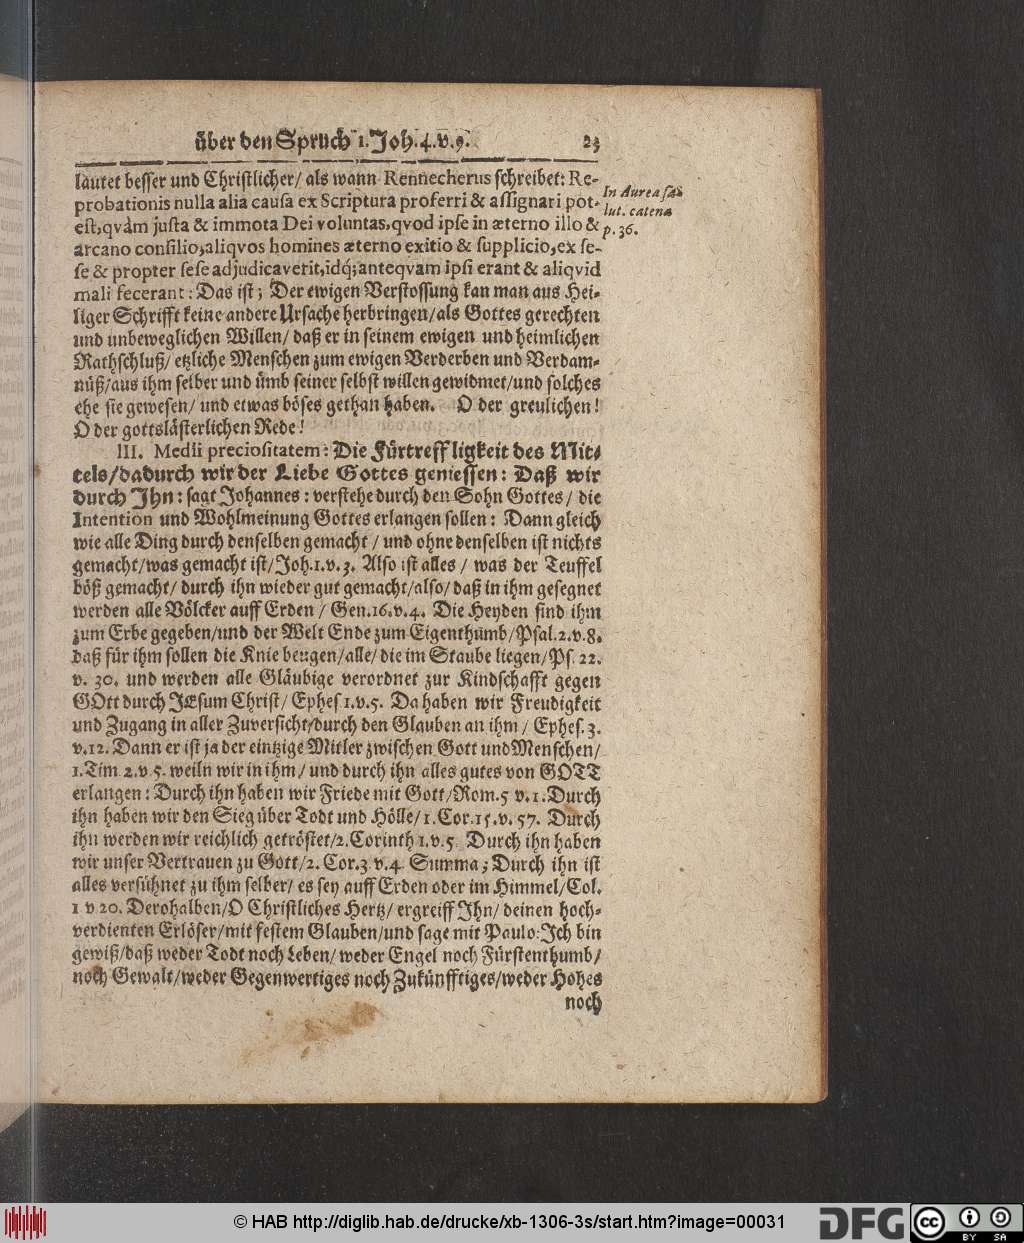 über den Spruch 1. Joh. 4. v. 9. 23
lautet besser und Christlicher/ als wann Rennecherus schreibet: Re-
probationis nulla alia causa ex Scriptura proferri & assignari pot-
est, qvàm justa & immota Dei voluntas, qvod ipse in æterno illo &
arcano consilio, aliqvos homines æterno exitio & supplicio, ex se-
se & propter sese adjudicaverit, idq́; anteqvam ipsi erant & aliqvid
mali fecerant: Das ist; Der ewigen Verstossung kan man aus Hei-
liger Schrifft keine andere Ursache herbringen/ als Gottes gerechten
und unbeweglichen Willen/ daß er in seinem ewigen und heimlichen
Rathschluß/ etzliche Menschen zum ewigen Verderben und Verdam-
nüß/ aus ihm selber und ümb seiner selbst willen gewidmet/ und solches
ehe sie gewesen/ und etwas böses gethan haben. O der greulichen!
O der gottslästerlichen Rede!
In Aurea sa-
lut. catena
p. 36.
III. Medii preciositatem: Die Fürtreffligkeit des Mit-
tels/ dadurch wir der Liebe Gottes geniessen: Daß wir
durch Jhn: sagt Johannes: verstehe durch den Sohn Gottes/ die
Intention und Wohlmeinung Gottes erlangen sollen: Dann gleich
wie alle Ding durch denselben gemacht/ und ohne denselben ist nichts
gemacht/ was gemacht ist/ Joh. 1. v. 3. Also ist alles/ was der Teuffel
böß gemacht/ durch ihn wieder gut gemacht/ also/ daß in ihm gesegnet
werden alle Völcker auff Erden/ Gen. 16. v. 4. Die Heyden sind ihm
zum Erbe gegeben/ und der Welt Ende zum Eigenthumb/ Psal. 2. v. 8.
Daß für ihm sollen die Knie beugen/ alle/ die im Staube liegen/ Ps. 22.
v. 30. und werden alle Gläubige verordnet zur Kindschafft gegen
GOtt durch JEsum Christ/ Ephes 1. v. 5. Da haben wir Freudigkeit
und Zugang in aller Zuversicht/ durch den Glauben an ihm/ Ephes. 3.
v. 12. Dann er ist ja der eintzige Mitler zwischen Gott und Menschen/
1. Tim 2. v 5. weiln wir in ihm/ und durch ihn alles gutes von GOTT
erlangen: Durch ihn haben wir Friede mit Gott/ Rom. 5 v. 1. Durch
ihn haben wir den Sieg über Todt und Hölle/ 1. Cor. 15. v. 57. Durch
ihn werden wir reichlich getröstet/ 2. Corinth 1. v. 5. Durch ihn haben
wir unser Vertrauen zu Gott/ 2. Cor. 3 v. 4. Summa; Durch ihn ist
alles versühnet zu ihm selber/ es sey auff Erden oder im Himmel/ Col.
1 v 20. Derohalben/ O Christliches Hertz/ ergreiff Jhn/ deinen hoch-
verdienten Erlöser/ mit festem Glauben/ und sage mit Paulo: Jch bin
gewiß/ daß weder Todt noch Leben/ weder Engel noch Fürstenthumb/
noch Gewalt/ weder Gegenwertiges noch Zukünfftiges/ weder Hohes
noch
© HAB http://diglib.hab.de/drucke/xb-1306-3s/start.htm?image=00031
DFG
cc BY SA